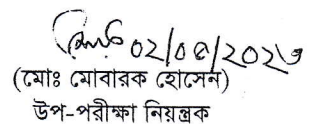 ০২/০৫/২০২৩
(মোঃ মোবারক হোসেন)
উপ-পরীক্ষা নিয়ন্ত্রক